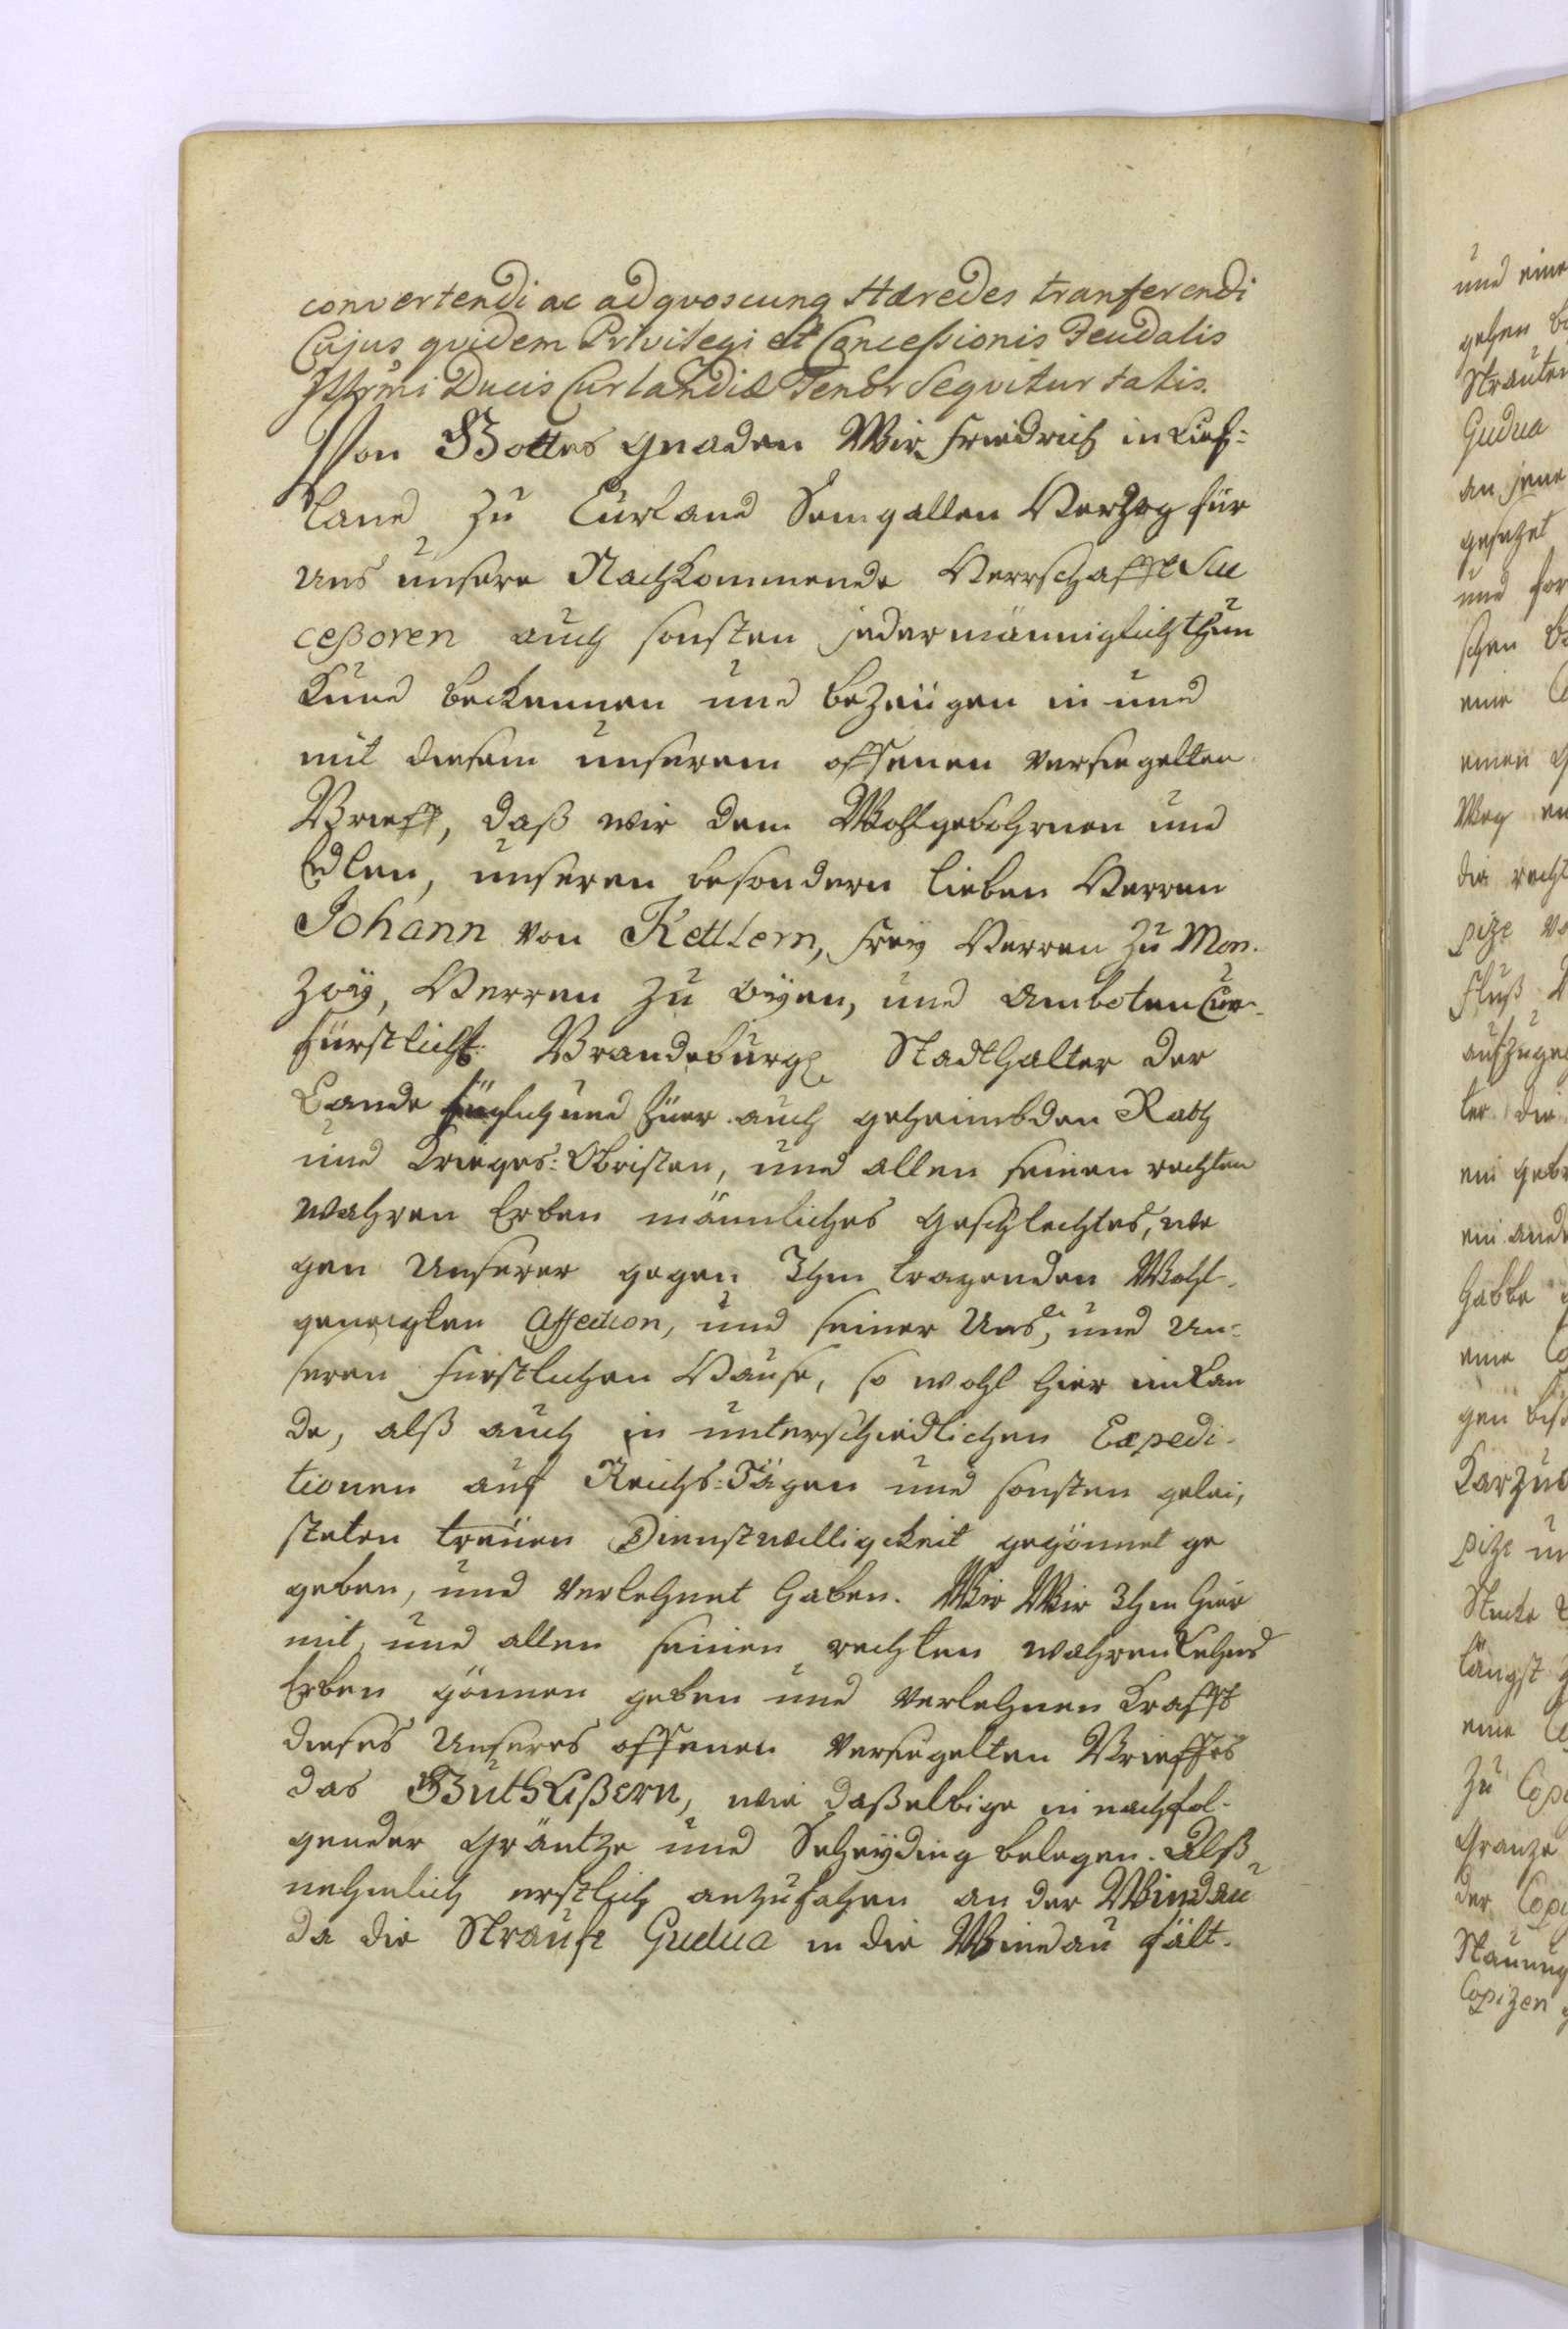 convertendi ac ad qvoscunq Hæredes tranferendi
Cujus qvidem Privilegi et Conceßionis Feudalis
Illstrmi Ducis Curlandiæ Tenor Seqvitur talis.
Von Gottes Gnaden Wir Friedrich in Lief-
land zu Curland Semgallen Herzog für
uns unsere Nachkommende Herrschafft Suc
ceßoren auch sonsten jedermänniglich thun
Kund beckennen und bezeügen in und
mit diesem unserem offenen versiegelten
Brieff, daß wir dem Wohlgebohrnen und
Edlen, unseren besondern lieben Herren
Johann von Kettlern, Frey Herren zu Mon-
zoy, Herren zu Oyen, und Amboten Cur-
fürstlich: Brandeburg Stadthalter der
Lande und auch geheimbden Rath
und Krieges-Obristen, und allen seinen rechten
wahren Erben männliches Geschlechtes, we
gen Unserer gegen Ihm tragenden Wohl-
geneigten Affection, und seiner Uns, und Un-
seren Fürstlichen Hause, so wohl hier im Lan
de, alß auch in unterschiedlichen Expedi-
tionen auf Reichs-Tägen und sonsten gelei,
steten treüen Dienstwilligckeit gegönnet ge
geben, und verlehnet haben. Wir Wir Ihm hier
mit, und allen seinen rechten wahren Lehns
Erben gönnen geben und verlehnen Krafft
dieses Unseres offenen versiegelten Brieffes
das Guth Lißern, wie daßelbige in nachfol-
gender Gräntze und Scheyding belegen. Alß
nehmlich erstlich anzufahen an der Windau
da die Strauße Gudua in die Windau fält.
und eine
gehen
Strauten
Gudua
an jene
gesezet
und
schen
eine
einen
Weg
die recht
pize
Fluß
aufzuge
ter die
ein
ein ande
habbe
eine
gen
pize
Stucke
längst
eine
zu
Gränze
der
Copizen